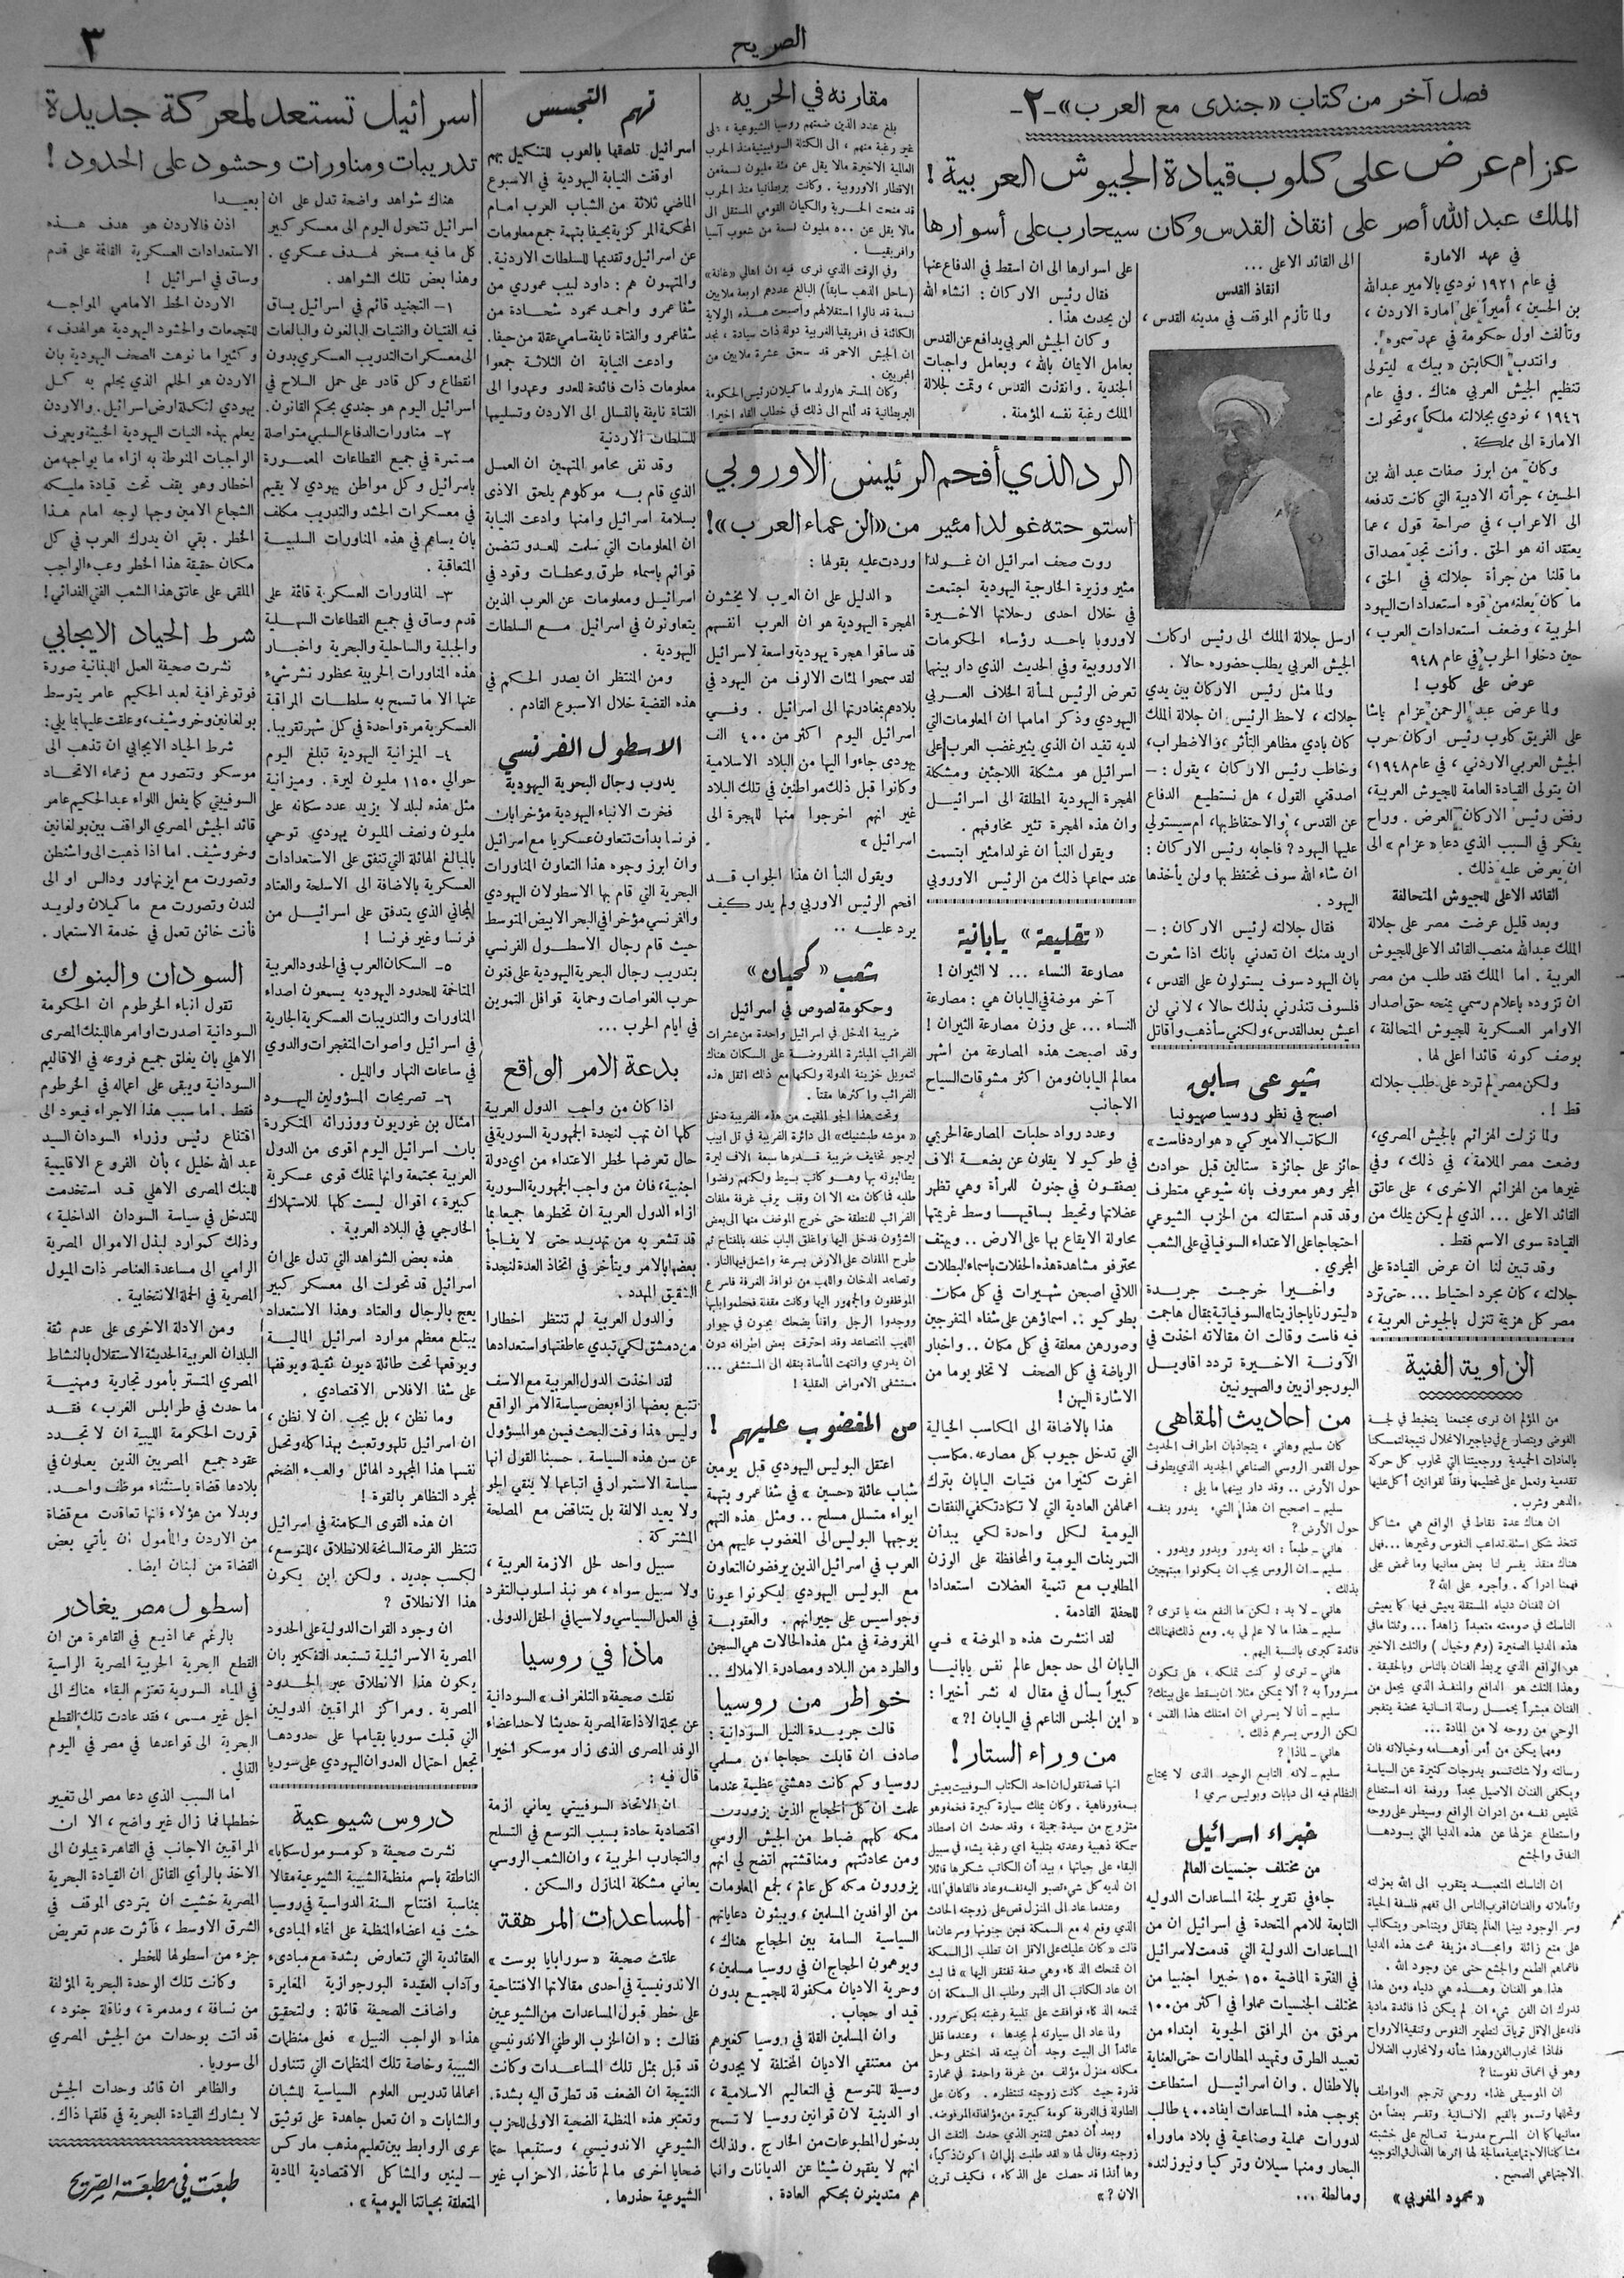 الصريح
٣
فصل آخر من كتاب «جندى مع العرب» -٢-
عزام عرض على كلوب قيادة الجيوش العربية !
الملك عبد الله أصر على انقاذ القدس وكان سيحارب على أسوارها
في عهد الامارة
في عام ١٩٢١ نودي بالامير عبدالله
بن الحسين ، أميراً على امارة الاردن ،
وتألفت اول حكومة في عهد سموه .
وانتدب الكابتن «بيك» ليتولى
تنظيم الجيش العربي هناك . وفي عام
١٩٤٦ ، نودي بجلالته ملكاً ، وتحولت
الامارة الى مملكة .
وكان من ابرز صفات عبد الله بن
الحسين ، جرأته الادبية التي كانت تدفعه
الى الاعراب ، في صراحة قول ، عما
يعتقد انه هو الحق . وأنت تجد مصداق
ما قلنا من جرأة جلالته في الحق ،
ما كان يعلنه من قوه استعدادات اليهود
الحربية ، وضعف استعدادات العرب ،
حين دخلوا الحرب في عام ٩٤٨
عرض على كلوب !
ولما عرض عبد الرحمن عزام باشا
على الفريق كلوب رئيس اركان حرب
الجيش العربي الاردني ، في عام ١٩٤٨،
ان يتولى القيادة العامة للجيوش العربية،
رفض رئيس الاركان العرض . وراح
يفكر في السبب الذي دعا «عزام» الى
ان يعرض عليه ذلك .
القائد الاعلى للجيوش المتحالفة
وبعد قليل عرضت مصر على جلالة
الملك عبدالله منصب القائد الاعلى للجيوش
العربية . اما الملك فقد طلب من مصر
ان تزوده باعلام رسمي يمنحه حق اصدار
الاوامر العسكرية للجيوش المتحالفة ،
بوصف كونه قائدا اعلى لها .
ولكن مصر لم ترد على طلب جلالته
قط ! .
ولما نزلت الهزائم بالجيش المصري،
وضعت مصر الملامة ، في ذلك ، وفي
غيرها من الهزائم الاخرى ، على عاتق
القائد الاعلى ... الذي لم يكن يملك من
القيادة سوى الاسم فقط .
وقد تبين لنا ان عرض القيادة على
جلالته ، كان مجرد احتياط ... حتى ترد
مصر كل هزيمة تنزل بالجيوش العربية ،
الى القائد الاعلى ...
انقاذ القدس
ولما تأزم الموقف في مدينه القدس ،
ارسل جلالة الملك الى رئيس اركان
الجيش العربي يطلب حضوره حالا .
ولما مثل رئيس الاركان بين يدي
جلالته ، لاحظ الرئيس ان جلالة الملك
كان بادي مظاهر التأثر ، والاضطراب،
وخاطب رئيس الاركان ، يقول : —
اصدقني القول ، هل نستطيع الدفاع
عن القدس ، والاحتفاظ بها، ام سيستولي
عليها اليهود ؟ فاجابه رئيس الاركان :
ان شاء الله سوف نحتفظ بها ولن يأخذها
اليهود .
فقال جلالته لرئيس الاركان : —
اريد منك ان تعدني بانك اذا شعرت
بان اليهود سوف يستولون على القدس ،
فلسوف تنذرني بذلك حالا ، لاني لن
اعيش بعد القدس، ولكني سأذهب واقاتل
على اسوارها الى ان اسقط في الدفاع عنها
فقال رئيس الاركان : انشاء الله
لن يحدث هذا .
وكان الجيش العربي يدافع عن القدس
بعامل الايمان بالله ، وبعامل واجبات
الجندية . وانقذت القدس ، وتمت لجلالة
الملك رغبة نفسه المؤمنة .
الزاوية الفنية
من المؤلم ان نرى مجتمعنا يتخبط في لجة
الفوضى ويتصارع في دياجير الانحلال نتيجة لتمسكنا
بالعادات الحميدية ورجعيتنا التي تحارب كل حركة
تقدمية وتعمل على تحطيمها وفقاً لقوانين أكل عليها
الدهر وشرب .
ان هناك عدة نقاط في الواقع هي مشاكل
تتخذ شكل اسئلة تداعب النفوس وتحيرها ... فهل
هناك منفذ يفسر لنا بعض معانيها وما غمض على
فهمنا ادراكه . وأجره على الله ؟
ان للفنان دنياه المستقلة يعيش فيها كما يعيش
الناسك في صومعته متعبداً زاهداً ... وثلثا مافي
هذه الدنيا الصغيرة (وهم وخيال) والثلث الاخير
هو الواقع الذي يربط الفنان بالناس وبالحقيقة .
وهذا الثلث هو الدافع والمنفذ الذي يجعل من
الفنان مبشراً يحمل رسالة انسانية محضة يتفجر
الوحي من روحه لا من المادة ...
ومهما يكن من أمر أوهامه وخيالاته فان
رسالته ولا شك تسمو بدرجات كثيرة عن السياسة
ويكفي الفنان الاصيل مجداً ورفعة انه استطاع
تخليص نفسه من ادران الواقع وسيطر على روحه
واستطاع عزلها عن هذه الدنيا التي يسودها
النفاق والجشع
ان الناسك المتعبد يتقرب الى الله بعزلته
وتأملاته والفنان اقرب الناس الى تفهم فلسفة الحياة
وسر الوجود بينما العالم يتقاتل ويتناحر ويتكالب
على متع زائلة وامجاد مزيفة عمت هذه الدنيا
فاعماهم الطمع والجشع حتى عن وجود الله .
هذا هو الفنان وهذه هي دنياه ومن هذا
ندرك ان الفن شيء ان لم يكن ذا فائدة مادية
فانه على الاقل ترياق لتطهير النفوس وتنقية الارواح
فلماذا نحارب الفن وهذا شأنه ولا نحارب الضلال
وهو في اعماق نفوسنا ؟
ان الموسيقى غذاء روحي تترجم العواطف
وتحللها وتسمو بالقيم الانسانية وتفسر بعضاً من
معانيها كما ان المسرح مدرسة تعالج على خشبته
مشاكلنا الاجتماعية معالجة لها اثرها الفعال في التوجيه
الاجتماعي الصحيح .
« محمود المغربي »
شيوعى سابق
اصبح في نظر روسيا صهيونيا
الكاتب الاميركي «هوارد فاست»
حائز على جائزة ستالين قبل حوادث
المجر وهو معروف بانه شيوعي متطرف
وقد قدم استقالته من الحزب الشيوعي
احتجاجا على الاعتداء السوفياتي على الشعب
المجري .
واخيرا خرجت جريدة
«ليتورنايا جازيتا» السوفياتية بمقال هاجمت
فيه فاست وقالت ان مقالاته اخذت في
الآونة الاخيرة تردد اقاويل
البورجوازيين والصهيونيين
من احاديث المقاهى
كان سليم وهاني ، يتجاذبان اطراف الحديث
حول القمر الروسي الصناعي الجديد الذي يطوف
حول الأرض .. وقد دار بينهما ما يلى :
سليم - اصحيح ان هذا الشيء يدور بنفسه
حول الأرض ؟
هاني - طبعاً ! انه يدور ويدور ويدور .
سليم - ان الروس يجب ان يكونوا مبتهجين
بذلك .
هاني - لا بد ! لكن ما النفع منه يا ترى ؟
سليم - هذا ما لا علم لي به. ومع ذلك فهنالك
فائدة كبرى بالنسبة اليهم .
هاني - ترى لو كنت تملكه ، هل تكون
مسروراً به ؟ ألا يمكن مثلا ان يسقط على بيتك؟
سليم - أنا لا يسرني ان امتلك هذا القمر ،
لكن الروس يسرهم ذلك .
هاني - لماذا ؟
سليم - لانه التابع الوحيد الذى لا يحتاج
النظام فيه الى دبابات وبوليس سري !
خبراء اسرائيل
من مختلف جنسيات العالم
جاء في تقرير لجنة المساعدات الدولية
التابعة للامم المتحدة في اسرائيل ان من
المساعدات الدولية التي قدمت لاسرائيل
في الفترة الماضية ١٥٠ خبيرا اجنبيا من
مختلف الجنسيات عملوا في اكثر من ١٠٠
مرفق من المرافق الحيوية ابتداء من
تعبيد الطرق وتمهيد المطارات حتى العناية
بالاطفال . وان اسرائيل استطاعت
بموجب هذه المساعدات ايفاد ٤٠٠ طالب
لدورات عملية وصناعية في بلاد ماوراء
البحار ومنها سيلان وتركيا ونيوزلنده
ومالطة ...
مقارنه في الحريه
بلغ عدد الذين ضمتهم روسيا الشيوعية ، على
غير رغبة منهم ، الى الكتلة السوفييتية منذ الحرب
العالمية الاخيرة مالا يقل عن مئة مليون نسمة من
الاقطار الاوروبية . وكانت بريطانيا منذ الحرب
قد منحت الحرية والكيان القومي المستقل الى
مالا يقل عن ٥٠٠ مليون نسمة من شعوب آسيا
وافريقيا .
وفي الوقت الذي نرى فيه ان اهالي «غانة»
(ساحل الذهب سابقاً) البالغ عددهم اربعة ملايين
نسمة قد نالوا استقلالهم واصبحت هذه الولاية
الكائنة في افريقيا الغربية دولة ذات سيادة ، نجد
ان الجيش الاحمر قد سحق عشرة ملايين من
المجريين .
وكان المستر هارولد ماكميلان رئيس الحكومة
البريطانية قد ألمح الى ذلك في خطاب القاه اخيرا.
الرد الذي أفحم الرئيس الاوروبي
استوحته غولدا مئير من «الزعماء العرب»!
روت صحف اسرائيل ان غولدا
مئير وزيرة الخارجية اليهودية اجتمعت
في خلال احدى رحلاتها الاخيرة
لاوروبا باحد رؤساء الحكومات
الاوروبية وفي الحديث الذي دار بينها
تعرض الرئيس لمسألة الخلاف العربي
اليهودي وذكر امامها ان المعلومات التي
لديه تفيد ان الذي يثير غضب العرب على
اسرائيل هو مشكلة اللاجئين ومشكلة
الهجرة اليهودية المطلقة الى اسرائيل
وان هذه الهجرة تثير مخاوفهم .
ويقول النبأ ان غولدا مئير ابتسمت
عند سماعها ذلك من الرئيس الاوروبي
وردت عليه بقولها :
« الدليل على ان العرب لا يخشون
الهجرة اليهودية هو ان العرب انفسهم
قد ساقوا هجرة يهودية واسعة لاسرائيل
لقد سمحوا لمئات الالوف من اليهود في
بلادهم بمغادرتها الى اسرائيل . وفي
اسرائيل اليوم اكثر من ٤٠٠ الف
يهودى جاءوا اليها من البلاد الاسلامية
وكانوا قبل ذلك مواطنين في تلك البلاد
غير انهم اخرجوا منها للهجرة الى
اسرائيل »
ويقول النبأ ان هذا الجواب قد
افحم الرئيس الاوربي ولم يدر كيف
يرد عليه ..
«تقليعة» يابانية
مصارعة النساء ... لا الثيران !
آخر موضة في اليابان هي : مصارعة
النساء ... على وزن مصارعة الثيران !
وقد اصبحت هذه المصارعة من اشهر
معالم اليابان ومن اكثر مشوقات السياح
الاجانب
وعدد رواد حلبات المصارعة الحربي
في طوكيو لا يقلون عن بضعة الاف
يصفقون في جنون للمرأة وهي تظهر
عضلاتها وتحيط بساقيها وسط غريمتها
محاولة الايقاع بها على الارض .. ويهتف
محترفو مشاهدة هذه الحفلات باسماء البطلات
اللاتي اصبحن شهيرات في كل مكان
بطوكيو :. اسماؤهن على شفاه المتفرجين
وصورهن معلقة في كل مكان .. واخبار
الرياضة في كل الصحف لا تخلو يوما من
الاشارة اليهن !
هذا بالاضافة الى المكاسب الخيالية
التي تدخل جيوب كل مصارعه. مكاسب
اغرت كثيرا من فتيات اليابان بترك
اعمالهن العادية التي لا تكاد تكفي النفقات
اليومية لكل واحدة لكي يبدأن
التمرينات اليومية والمحافظة على الوزن
المطلوب مع تنمية العضلات استعدادا
للحفلة القادمة .
لقد انتشرت هذه «الموضة» في
اليابان الى حد جعل عالم نفس يابانيا
كبيراً يسأل في مقال له نشر أخيرا :
« اين الجنس الناعم في اليابان !؟ »
من وراء الستار !
انها قصة تقول ان احد الكتاب السوفييت يعيش
بسعة ورفاهية . وكان يملك سيارة كبيرة فخمة وهو
متزوج من سيدة جميلة ، وقد حدث ان اصطاد
سمكة ذهبية وعدته بتلبية اي رغبة يشاء في سبيل
البقاء على حياتها ، بيد أن الكاتب شكرها قائلا
ان لديه كل شيء تصبو اليه نفسه وعاد فالقاها في الماء
وعندما عاد الى المنزل قص على زوجته الحادث
الذي وقع له مع السمكة فجن جنونها وسرعان ما
قالت «كان عليك على الاقل ان تطلب الى السمكة
ان تمنحك الذكاء وهي صفة تفتقر اليها» فما لبث
ان عاد الكاتب الى النهر وطلب الى السمكة ان
تمنحه الذكاء فوافقت على تلبية رغبته بكل سرور.
ولما عاد الى سيارته لم يجدها ، وعندما قفل
عائداً الى البيت وجد أن بيته قد اختفى وحل
مكانه منزل مؤلف من غرفة واحدة في عمارة
قذرة حيث كانت زوجته تنتظره . وكان على
الطاولة في الغرفة كومة كبيرة من مؤلفاته المرفوضه.
وبعد أن دهش للتغير الذي حدث التفت الى
زوجته وقال لها «لقد طلبت إلي ان اكون ذكيا،
وها أنذا قد حصلت على الذكاء ، فكيف ترين
الان ؟ »
شعب «كحيان»
وحكومة لصوص في اسرائيل
ضريبة الدخل في اسرائيل واحدة من عشرات
الضرائب المباشرة المفروضة على السكان هناك
لتمويل خزينة الدولة ولكنها مع ذلك اثقل هذه
الضرائب واكثرها مقتاً .
وتحت هذا الجو المقيت من هذه الضريبة دخل
«موشه طبشنيك» الى دائرة الضريبة في تل ابيب
ليرجو تخفيف ضريبة قدرها سبعة الاف ليرة
يطالبونه بها وهو كاتب بسيط ولكنهم رفضوا
طلبه فما كان منه الا ان وقف يرقب غرفة ملفات
الضرائب للمنطقة حتى خرج الموظف منها الى بعض
الشؤون فدخل اليها واغلق الباب خلفه بالمفتاح ثم
طرح الملفات على الارض بسرعة واشعل فيها النار.
وتصاعد الدخان واللهب من نوافذ الغرفة فاسرع
الموظفون والجمهور اليها وكانت مقفلة فحطموا بابها
ووجدوا الرجل واقفاً يضحك بجنون في جوار
اللهيب المتصاعد وقد احترقت بعض اطرافه دون
ان يدري وانتهت المأساة بنقله الى المستشفى ...
مستشفى الامراض العقلية !
من المغضوب عليهم !
اعتقل البوليس اليهودي قبل يومين
شباب عائلة «حسين» في شفا عمرو بتهمة
ايواء متسلل مسلح .. ومثل هذه التهم
يوجهها البوليس الى المغضوب عليهم من
العرب في اسرائيل الذين يرفضون التعاون
مع البوليس اليهودي ليكونوا عيونا
وجواسيس على جيرانهم . والعقوبة
المفروضة في مثل هذه الحالات هي السجن
والطرد من البلاد ومصادرة الاملاك ..
خواطر من روسيا
قالت جريدة النيل السودانية :
صادف ان قابلت حجاجا من مسلمي
روسيا وكم كانت دهشتي عظيمة عندما
علمت ان كل الحجاج الذين يزورون
مكه كلهم ضباط من الجيش الروسي
ومن محادثتهم ومناقشتهم أتضح لي انهم
يزورون مكه كل عام ، لجمع المعلومات
من الوافدين المسلمين ، ويبثون دعاياتهم
السياسية السامة بين الحجاج هناك ،
ويوهمون الحجاج ان في روسيا مسلمين ،
وحرية الاديان مكفولة للجميع بدون
قيد او حجاب .
وان المسلمين القلة في روسيا كغيرهم
من معتنقي الاديان المختلفة لا يجدون
وسيلة للتوسع في التعاليم الاسلامية ،
او الدينية لان قوانين روسيا لا تسمح
بدخول المطبوعات من الخارج . ولذلك
انهم لا يفقهون شيئا عن الديانات وانما
هم متدينون بحكم العادة .
تهم التجسس
اسرائيل تلصقها بالعرب للتنكيل بهم
اوقفت النيابة اليهودية في الاسبوع
الماضي ثلاثة من الشباب العرب امام
المحكمة المركزية بحيفا بتهمة جمع معلومات
عن اسرائيل وتقديمها للسلطات الاردنية.
والمتهمون هم : داود لبيب عموري من
شفا عمرو واحمد محمود شحادة من
شفاعمرو والفتاة نايفة سامي عقلة من حيفا.
وادعت النيابة ان الثلاثة جمعوا
معلومات ذات فائدة للعدو وعهدوا الى
الفتاة نايفة بالتسلل الى الاردن وتسليمها
للسلطات الاردنية
وقد نفى محامو المتهمين ان العمل
الذي قام به موكلوهم يلحق الاذى
بسلامة اسرائيل وامنها وادعت النيابة
ان المعلومات التي سلمت للعدو تتضمن
قوائم باسماء طرق ومحطات وقود في
اسرائيل ومعلومات عن العرب الذين
يتعاونون في اسرائيل مع السلطات
اليهودية .
ومن المنتظر ان يصدر الحكم في
هذه القضية خلال الاسبوع القادم .
الاسطول الفرنسي
يدرب رجال البحرية اليهودية
فخرت الانباء اليهودية مؤخرا بان
فرنسا بدأت تتعاون عسكريا مع اسرائيل
وان ابرز وجوه هذا التعاون المناورات
البحرية التي قام بها الاسطولان اليهودي
والفرنسي مؤخرا في البحر الابيض المتوسط
حيث قام رجال الاسطول الفرنسي
بتدريب رجال البحرية اليهودية على فنون
حرب الغواصات وحماية قوافل التموين
في ايام الحرب ...
بدعة الامر الواقع
اذا كان من واجب الدول العربية
كلها ان تهب لنجدة الجمهورية السورية في
حال تعرضها لخطر الاعتداء من اي دولة
اجنبية، فان من واجب الجمهورية السورية
ازاء الدول العربية ان تخطرها جميعا بما
قد تشعر به من تهديد حتى لا يفاجأ
بعضها بالامر ويتأخر في اتخاذ العدة لنجدة
الشقيق المهدد .
والدول العربية لم تنتظر اخطارا
من دمشق لكي تبدي عاطفتها واستعدادها
لقد اخذت الدول العربية مع الاسف
تتبع بعضها ازاء بعض سياسة الامر الواقع
وليس هذا وقت البحث فيمن هو المسؤول
عن سن هذه السياسة . حسبنا القول انها
سياسة الاستمرار في اتباعها لا ينقي الجو
ولا يعيد الالفة بل يتناقض مع المصلحة
المشتركة .
سبيل واحد لحل الازمة العربية ،
ولا سبيل سواه ، هو نبذ اسلوب التفرد
في العمل السياسي ولاسيما في الحقل الدولى.
ماذا في روسيا
نقلت صحيفة «التلغراف» السودانية
عن مجلة الاذاعة المصرية حديثا لاحد اعضاء
الوفد المصرى الذى زار موسكو اخيرا
قال فيه :
ان الاتحاد السوفييتي يعاني ازمة
اقتصادية حادة بسبب التوسع في التسلح
والتجارب الحربية ، وان الشعب الروسي
يعاني مشكلة المنازل والسكن .
المساعدات المرهقة
علقت صحيفة «سورابايا بوست»
الاندونيسية في احدى مقالاتها الافتتاحية
على خطر قبول المساعدات من الشيوعيين
فقالت : «ان الحزب الوطني الاندونيسي
قد قبل بمثل تلك المساعدات وكانت
النتيجة ان الضعف قد تطرق اليه بشدة.
وتعتبر هذه المنظمة الضحية الاولى للحزب
الشيوعي الاندونيسي ، وستتبعها حتما
ضحايا اخرى ما لم تأخذ الاحزاب غير
الشيوعية حذرها .
اسرائيل تستعد لمعركة جديدة
تدريبات ومناورات وحشود على الحدود !
هناك شواهد واضحة تدل على ان
اسرائيل تتحول اليوم الى معسكر كبير
كل ما فيه مسخر لهدف عسكري .
وهذا بعض تلك الشواهد .
١- التجنيد قائم في اسرائيل يساق
فيه الفتيان والفتيات البالغون والبالغات
الى معسكرات التدريب العسكري بدون
انقطاع وكل قادر على حمل السلاح في
اسرائيل اليوم هو جندي بحكم القانون.
٢- مناورات الدفاع السلبي متواصلة
مستمرة في جميع القطاعات المعمورة
باسرائيل وكل مواطن يهودي لا يقيم
في معسكرات الحشد والتدريب مكلف
بان يساهم في هذه المناورات السلبية
المتعاقبة .
٣- المناورات العسكرية قائمة على
قدم وساق في جميع القطاعات السهلية
والجبلية والساحلية والبحرية واخبار
هذه المناورات الحربية محظور نشر شيء
عنها الا ما تسمح به سلطات المراقبة
العسكرية مرة واحدة في كل شهر تقريبا.
٤- الميزانية اليهودية تبلغ اليوم
حوالي ١١٥٠ مليون ليرة . وميزانية
مثل هذه لبلد لا يزيد عدد سكانه على
مليون ونصف المليون يهودي توحي
بالمبالغ الهائلة التي تنفق على الاستعدادات
العسكرية بالاضافة الى الاسلحة والعتاد
المجاني الذي يتدفق على اسرائيل من
فرنسا وغير فرنسا !
٥- السكان العرب في الحدود العربية
المتاخمة للحدود اليهودية يسمعون اصداء
المناورات والتدريبات العسكرية الجارية
في اسرائيل واصوات المتفجرات والدوي
في ساعات النهار والليل .
٦- تصريحات المسؤولين اليهود
امثال بن غوريون ووزرائه المتكررة
بان اسرائيل اليوم اقوى من الدول
العربية مجتمعة وانها تملك قوى عسكرية
كبيرة ، اقوال ليست كلها للاستهلاك
الخارجي في البلاد العربية .
هذه بعض الشواهد التي تدل على ان
اسرائيل قد تحولت الى معسكر كبير
يعج بالرجال والعتاد وهذا الاستعداد
يبتلع معظم موارد اسرائيل المالية
ويوقعها تحت طائلة ديون ثقيلة ويوقفها
على شفا الافلاس الاقتصادي .
وما نظن ، بل يجب ان لا نظن ،
ان اسرائيل تلهو وتعبث بهذا كله وتحمل
نفسها هذا المجهود الهائل والعبء الضخم
لمجرد التظاهر بالقوة !
ان هذه القوى الكامنة في اسرائيل
تنتظر الفرصة السانحة للانطلاق ، للتوسع،
لكسب جديد . ولكن اين يكون
هذا الانطلاق ؟
ان وجود القوات الدولية على الحدود
المصرية الاسرائيلية تستبعد التفكير بان
يكون هذا الانطلاق عبر الحدود
المصرية . ومراكز المراقبين الدوليين
التي قبلت سوريا بقيامها على حدودها
تجعل احتمال العدوان اليهودي على سوريا
بعيدا
اذن فالاردن هو هدف هذه
الاستعدادات العسكرية القائمة على قدم
وساق في اسرائيل !
الاردن الخط الامامي المواجه
للتجمعات والحشود اليهودية هو الهدف ،
وكثيرا ما نوهت الصحف اليهودية بان
الاردن هو الحلم الذي يحلم به كل
يهودي لتكملة ارض اسرائيل. والاردن
يعلم بهذه النيات اليهودية الخبيثة ويعرف
الواجبات المنوطة به ازاء ما يواجهه من
اخطار وهو يقف تحت قيادة مليكه
الشجاع الامين وجها لوجه امام هذا
الخطر . بقي ان يدرك العرب في كل
مكان حقيقة هذا الخطر وعبء الواجب
الملقى على عاتق هذا الشعب الفتي الفدائي!
شرط الحياد الايجابي
نشرت صحيفة العمل اللبنانية صورة
فوتوغرافية لعبد الحكيم عامر يتوسط
بولغانين وخروشيف، وعلقت عليها بما يلي:
شرط الحياد الايجابي ان تذهب الى
موسكو وتتصور مع زعماء الاتحاد
السوفيتي كما يفعل اللواء عبد الحكيم عامر
قائد الجيش المصري الواقف بين بولغانين
وخروشيف. اما اذا ذهبت الى واشنطن
وتصورت مع ايزنهاور ودالس او الى
لندن وتصورت مع ماكميلان ولويد
فأنت خائن تعمل في خدمة الاستعمار .
السودان والبنوك
تقول انباء الخرطوم ان الحكومة
السودانية اصدرت اوامرها للبنك المصرى
الاهلي بان يغلق جميع فروعه في الاقاليم
السودانية ويبقى على اعماله في الخرطوم
فقط . اما سبب هذا الاجراء فيعود الى
اقتناع رئيس وزراء السودان السيد
عبد الله خليل ، بأن الفروع الاقليمية
للبنك المصرى الاهلي قد استخدمت
للتدخل في سياسة السودان الداخلية ،
وذلك كموارد لبذل الاموال المصرية
الرامي الى مساعدة العناصر ذات الميول
المصرية في الحملة الانتخابية .
ومن الادلة الاخرى على عدم ثقة
البلدان العربية الحديثة الاستقلال بالنشاط
المصري المتستر بأمور تجارية ومهنية
ما حدث في طرابلس الغرب ، فقد
قررت الحكومة الليبية ان لا تجدد
عقود جميع المصريين الذين يعملون في
بلادها قضاة باستثناء موظف واحد.
وبدلا من هؤلاء فانها تعاقدت مع قضاة
من الاردن والمأمول أن يأتي بعض
القضاة من لبنان ايضا .
اسطول مصر يغادر
بالرغم عما اذيع في القاهرة من ان
القطع البحرية الحربية المصرية الراسية
في المياه السورية تعتزم البقاء هناك الى
اجل غير مسمى ، فقد عادت تلك القطع
البحرية الى قواعدها في مصر في اليوم
التالي .
اما السبب الذي دعا مصر الى تغيير
خططها فما زال غير واضح ، الا ان
المراقبين الاجانب في القاهرة يميلون الى
الاخذ بالرأي القائل ان القيادة البحرية
المصرية خشيت ان يتردى الموقف في
الشرق الاوسط ، فآثرت عدم تعريض
جزء من اسطولها للخطر .
وكانت تلك الوحدة البحرية المؤلفة
من نسافة ، ومدمرة ، وناقلة جنود ،
قد اتت بوحدات من الجيش المصري
الى سوريا .
والظاهر ان قائد وحدات الجيش
لا يشارك القيادة البحرية في قلقها ذاك.
دروس شيوعية
نشرت صحيفة «كومسومول سكايا»
الناطقة باسم منظمة الشبيبة الشيوعية مقالا
بمناسبة افتتاح السنة الدراسية في روسيا
حثت فيه اعضاء المنظمة على انماء المبادىء
العقائدية التي تتعارض بشدة مع مبادىء
وآداب العقيدة البورجوازية المغايرة
واضافت الصحيفة قائلة : ولتحقيق
هذا «الواجب النبيل» فعلى منظمات
الشبيبة وخاصة تلك المنظمات التي تتناول
اعمالها تدريس العلوم السياسية للشبان
والشابات «ان تعمل جاهدة على توثيق
عرى الروابط بين تعليم مذهب ماركس
- لينين والمشاكل الاقتصادية المادية
المتعلقة بحياتنا اليومية » .
طبعت في مطبعة الصريح